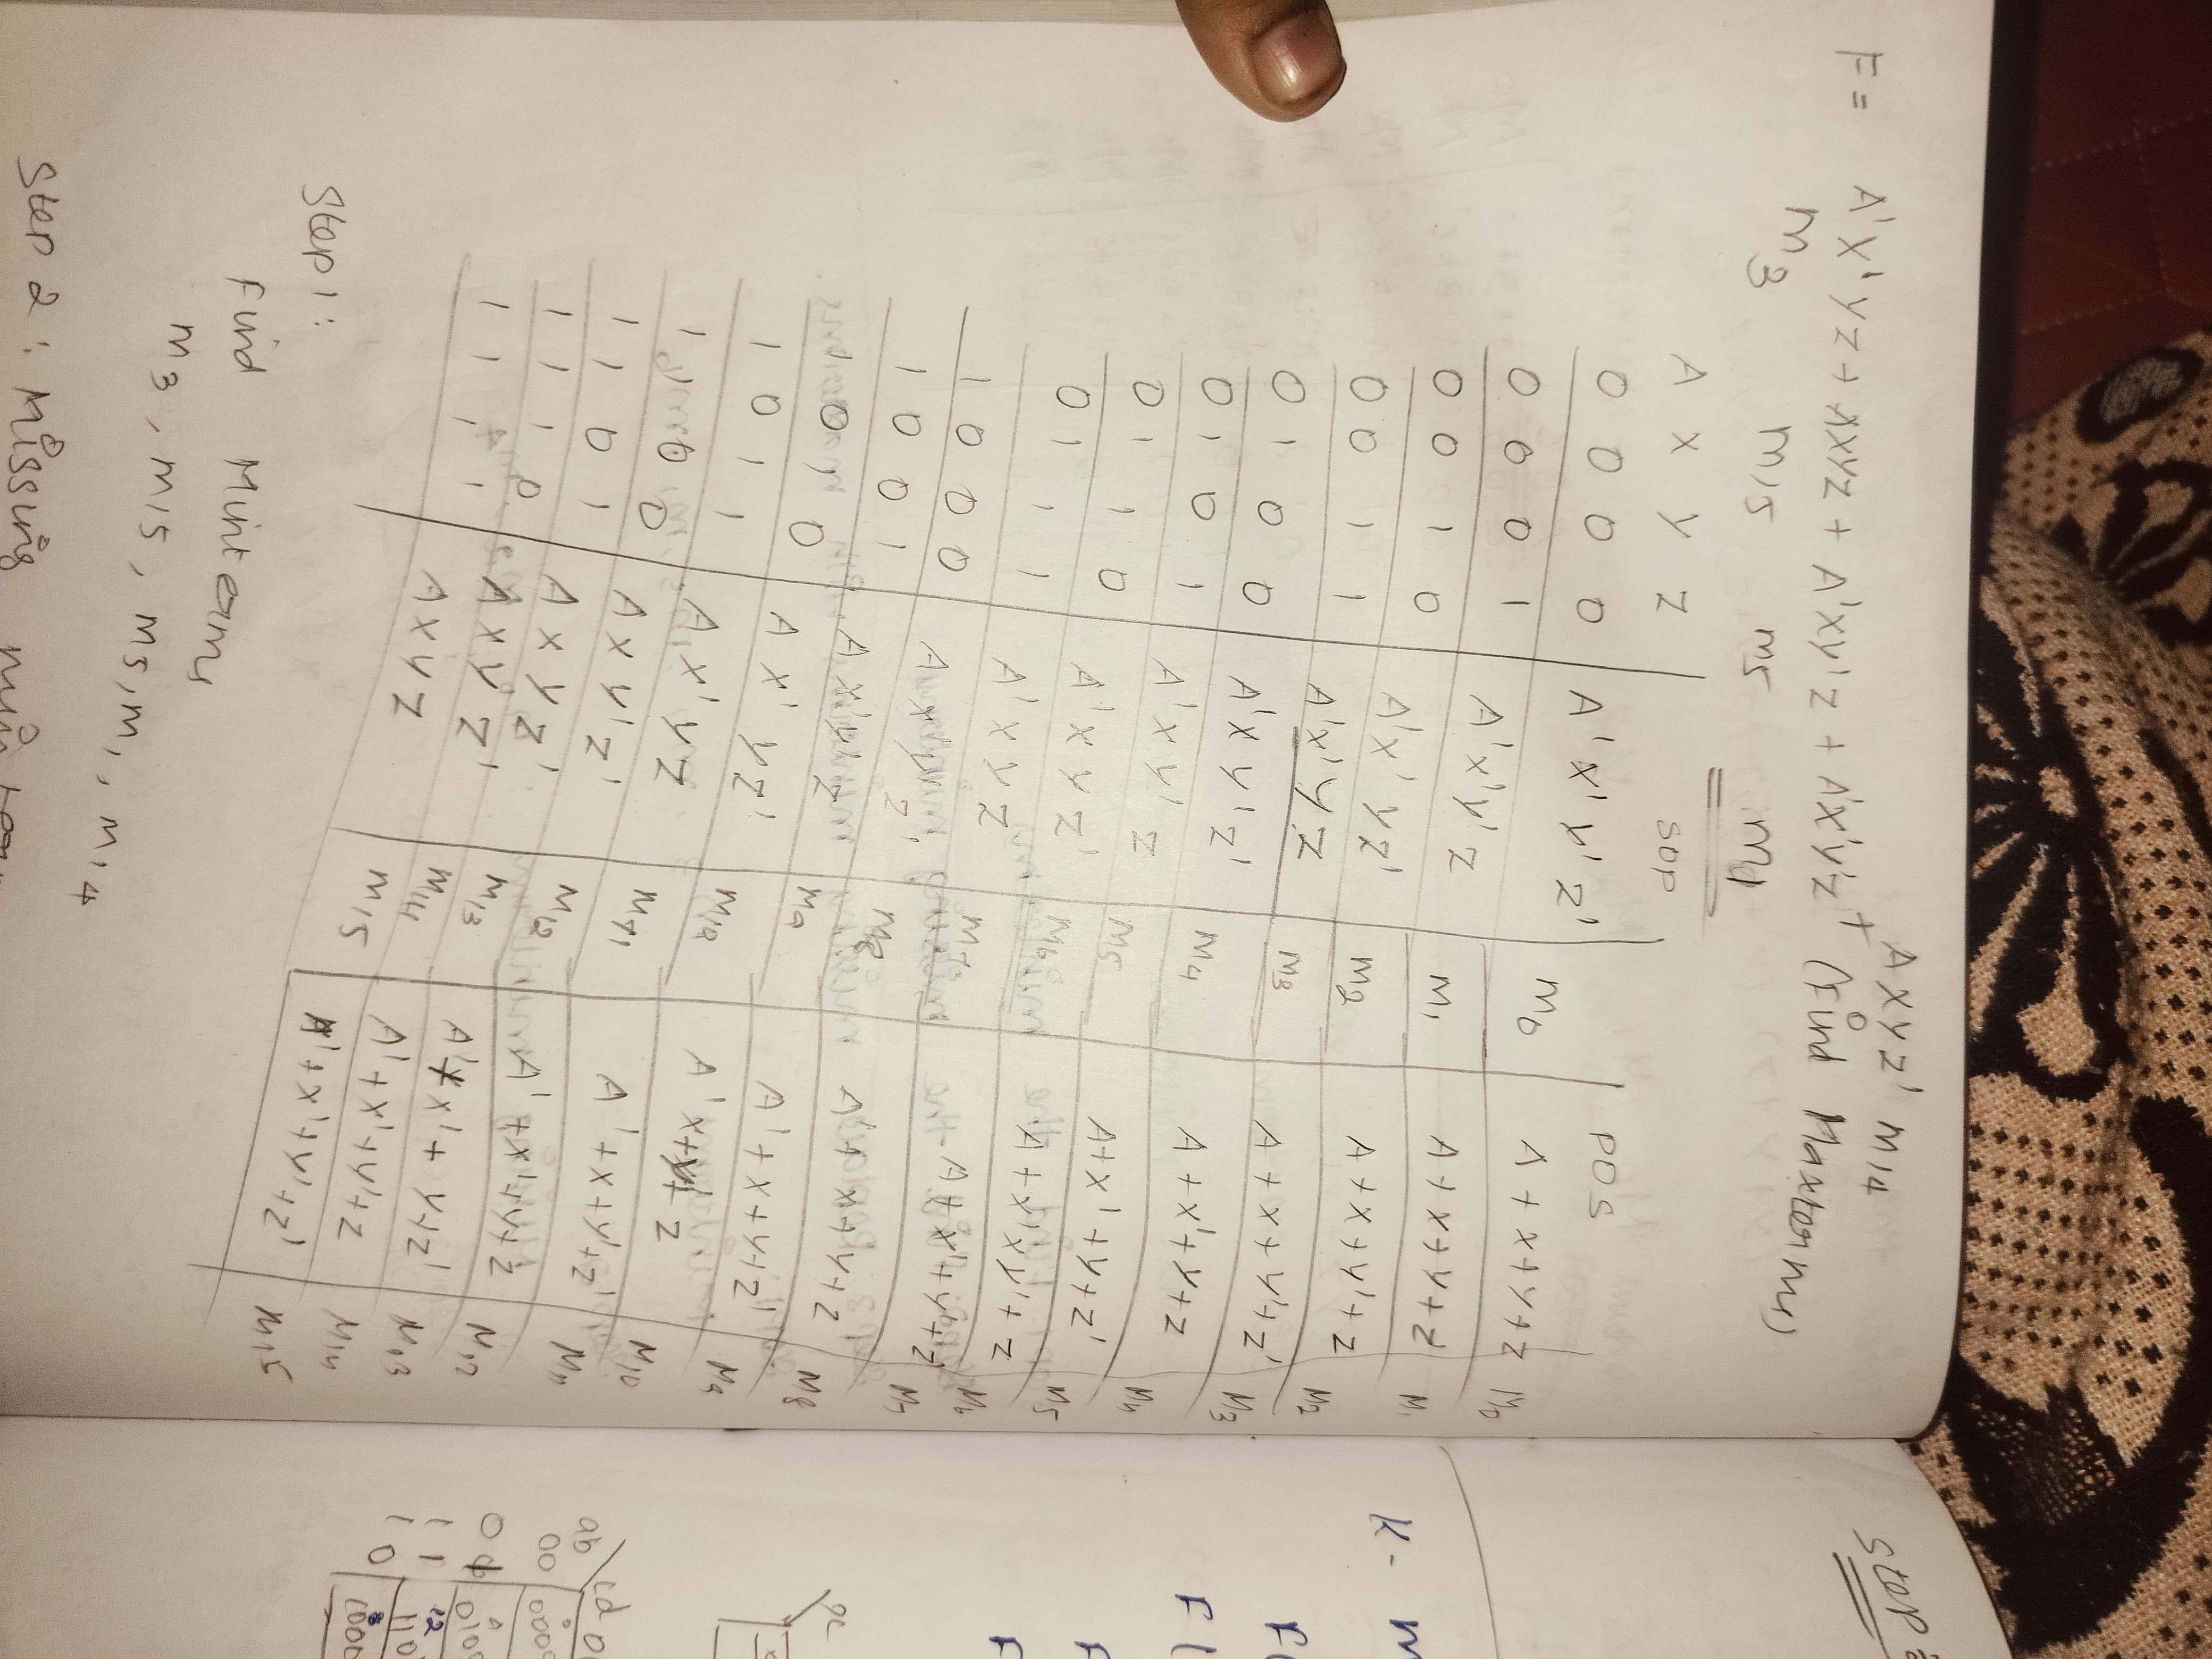 F = A'x'yz + AxyZ + A'xy'z + A'x'y'z + Axyz' m14
m3 m15 m5 m1 (Find Maxterms)
SOP POS
A x y z
0 0 0 0 A'x'y'z' m0 A+x+y+z M0
0 0 0 1 A'x'y'z m1 A+x+y+z' M1
0 0 1 0 A'x'yz' m2 A+x+y'+z M2
0 0 1 1 A'x'yz m3 A+x+y'+z' M3
0 1 0 0 A'xy'z' m4 A+x'+y+z M4
0 1 0 1 A'xy'z m5 A+x'+y+z' M5
0 1 1 0 A'xyz' m6 A+x'y'+z M6
0 1 1 1 A'xyz m7 A+x'+y'+z' M7
1 0 0 0 m8 A'+x+y+z M8
1 0 0 1 Ax'y'z m9 A'+x+y+z' M9
1 0 1 0 Ax'yz' m10 M10
1 0 1 1 Ax'yz m11 A'+x+y'+z' M11
1 1 0 0 Axy'z' m12 A'+x'+y+z M12
1 1 0 1 Axyz' m13 A'x'+y+z' M13
1 1 1 0 Axyz' m14 A'+x'+y'+z M14
1 1 1 1 Axyz m15 A'+x'+y'+z' M15
Step 1:
Find Minterms
m3, m15, m5, m1, m14
Step 2: Missing
K-
ab cd
00
11
10